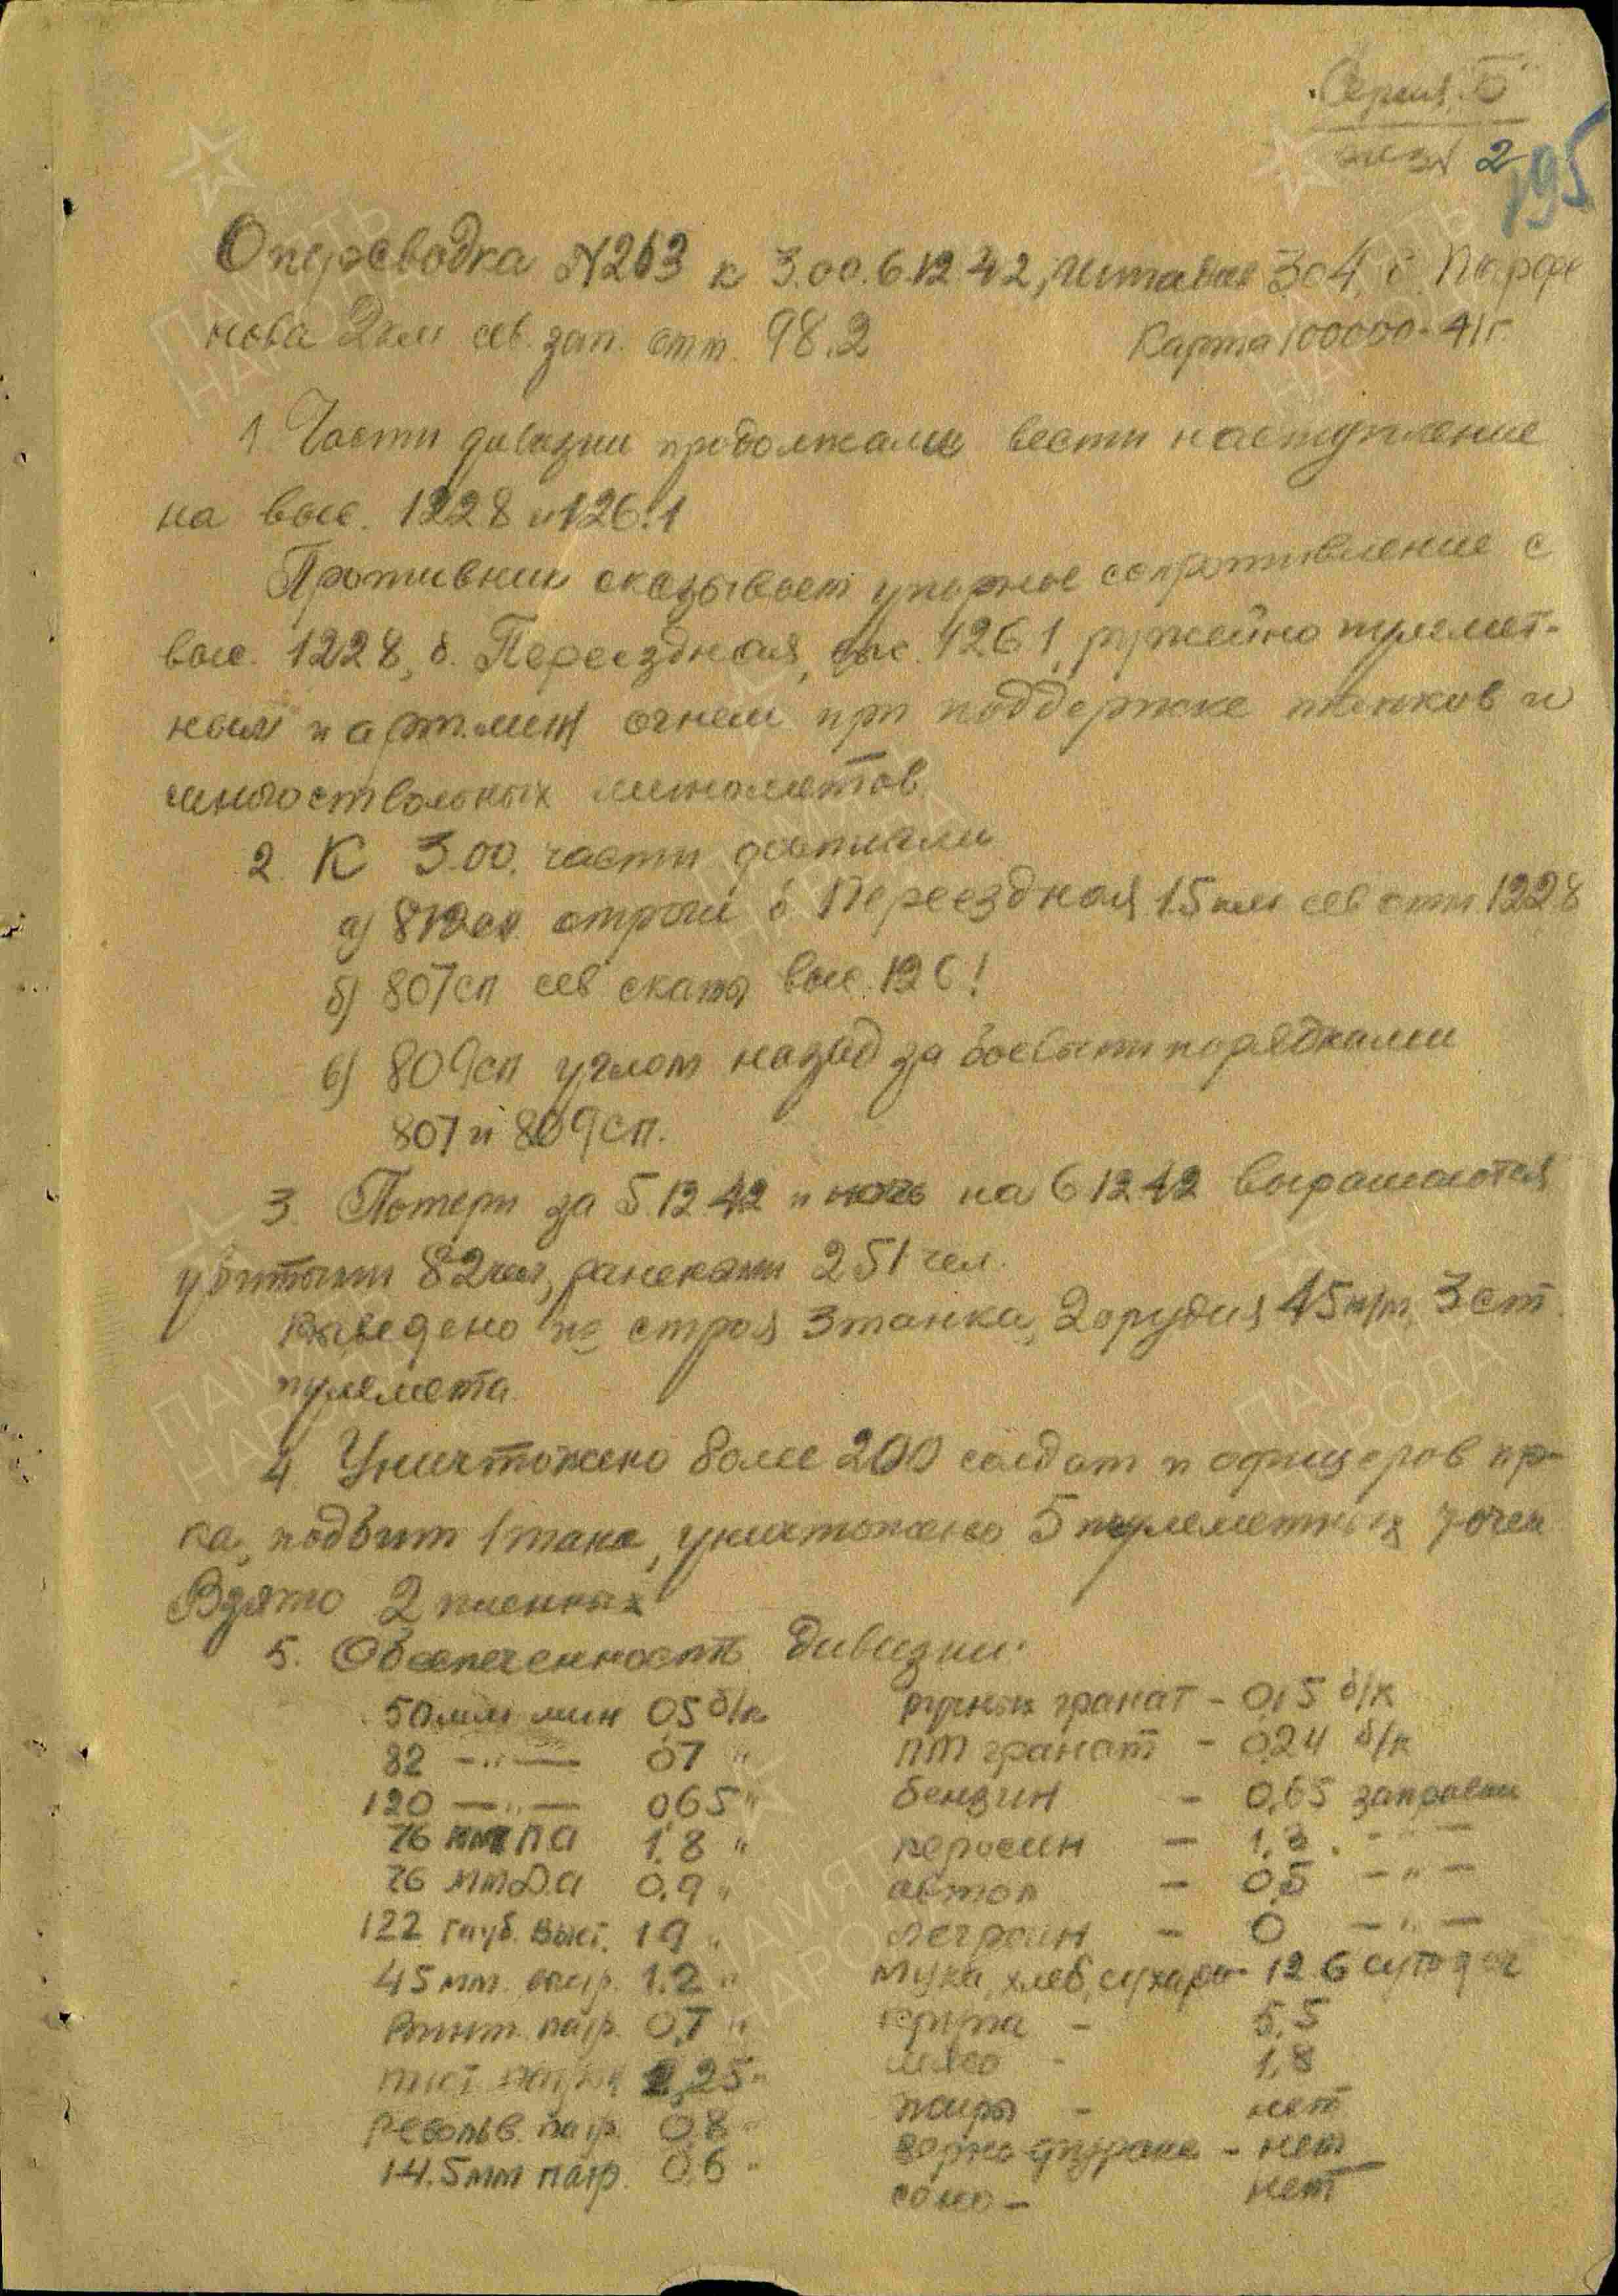 Серия "Б"
экз N 2
195
Оперсводка N263 к 3.00. 6.12.42, Штадив 304, б. Парфе
нова 2 км сев. зап. отм. 98.2
Карта 100000-41г.
1. Части дивизии продолжали вести наступление
на выс. 122.8 и 126.1
Противник оказывает упорное сопротивление с
выс. 122.8, б. Переездная, выс. 126.1, ружейно пулемет-
ным и арт.мин огнем при поддержке танков и
многоствольных минометов.
2. К 3.00. части достигли
а) 812сп отроги б. Переездная 1.5 км сев отм 122.8
б) 807сп сев скаты выс. 126.1
в) 809сп углом назад за боевыми порядками
807 и 809сп.
3. Потери за 5.12.42 и ночь на 6.12.42 выражаются
убитыми 82 чел, ранеными 251 чел.
Выведено из строя 3 танка, 2 орудия 45 м/м, 3 ст.
пулемета
4. Уничтожено более 200 солдат и офицеров пр-
ка, подбит 1 танк, уничтожено 5 пулеметных точек
Взято 2 пленных
5. Обеспеченность дивизии:
50 мм мин 0,5 б/к
82 —"— 0,7 "
120 —"— 0,65 "
76 мм ПА 1,8 "
76 мм ДА 0,9 "
122 гауб. выст. 1,9 "
45 мм. выстр. 1.2 "
Винт. патр. 0,7 "
пист патрон ,25 "
Револьв. патр. 0,8 "
14.5 мм патр. 0,6 "
ручных гранат - 0,5 б/к
ПТ гранат - 0,24 б/к
бензин - 0,65 заправки
керосин - 1,3 . —"—
автол - 0,5 —"—
легроин - 0 —"—
Мука, хлеб, сухари - 12.6 сутодач
крупа - 5,5
мясо - 1,8
жиры - нет
зерно фураж - нет
сено - нет